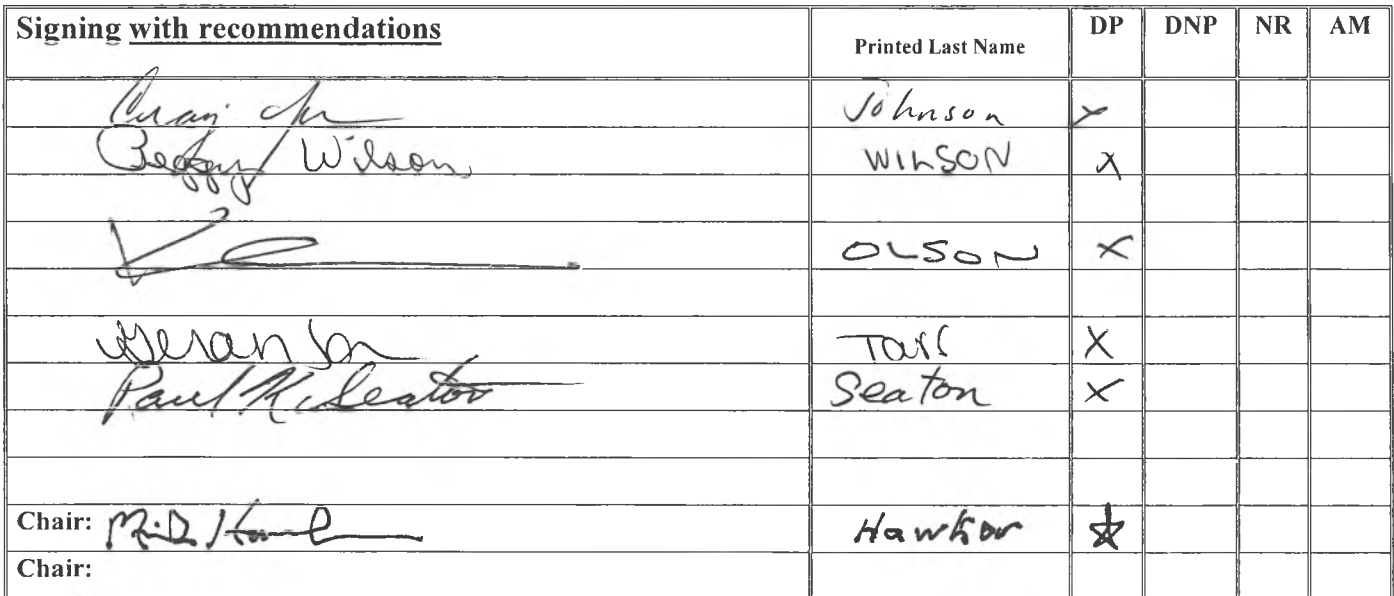 Signing with recommendations Printed Last Name DP DNP NR AM
Johnson x
Peggy Wilson WILSON x
OLSON x
Geran Tarr x
Paul K. Seaton Seaton x
Chair: Hawker
Chair: